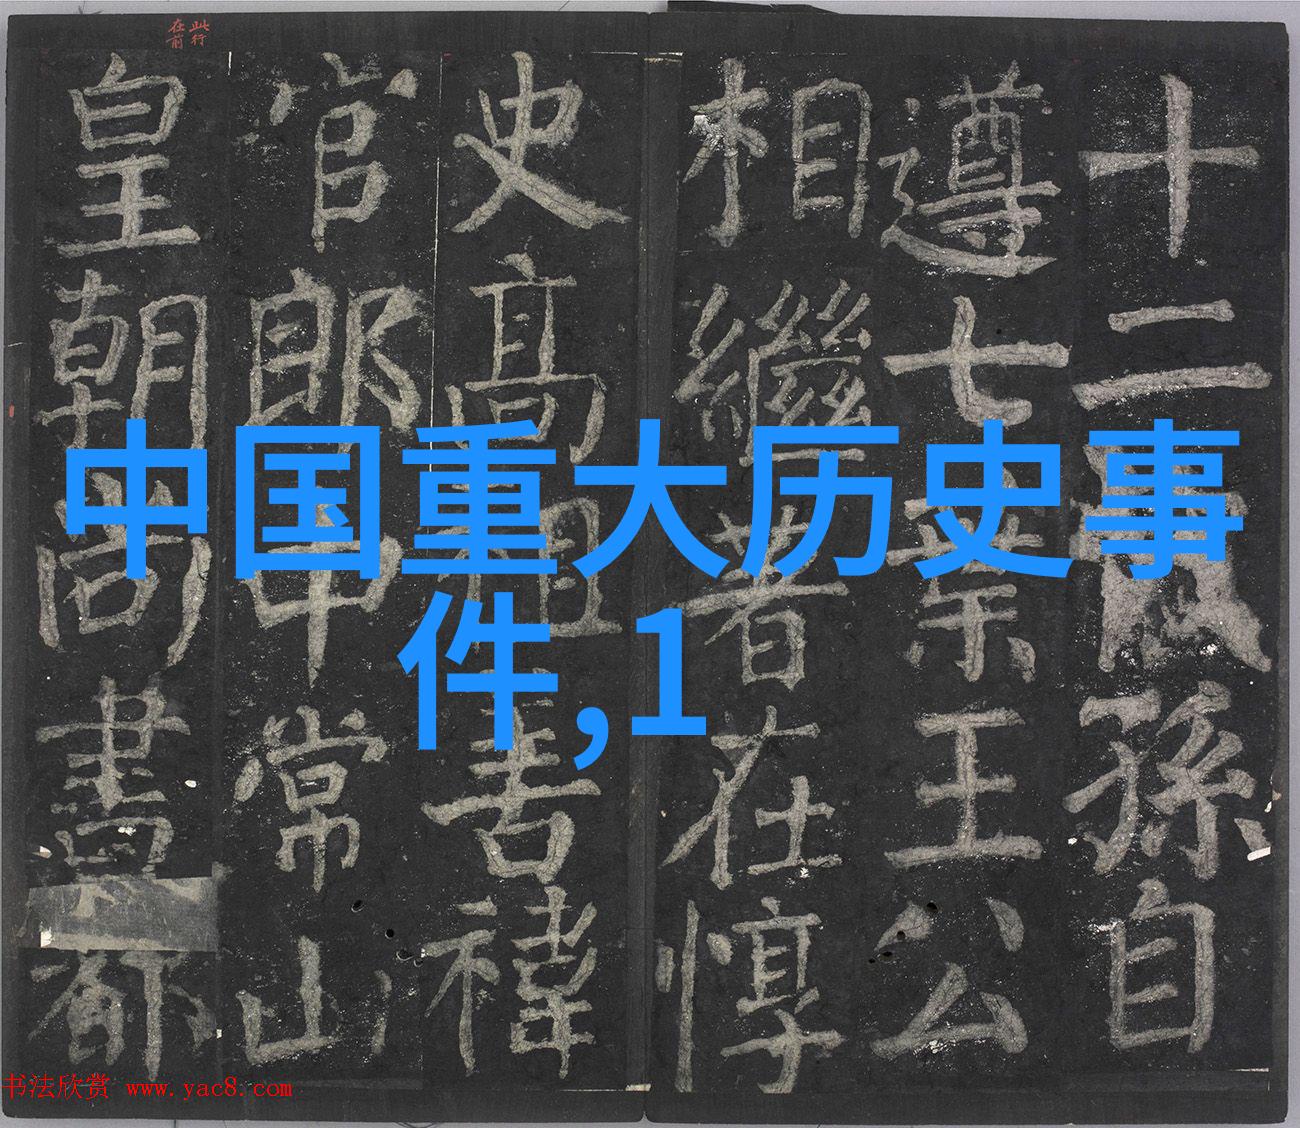 此行
在前
十二代孫自
遵七葉王公
相繼著在惇
史高祖諱
官郎中常山
皇朝尚書都
中国重大历史事
件,1
书法欣赏 www.yac8.com